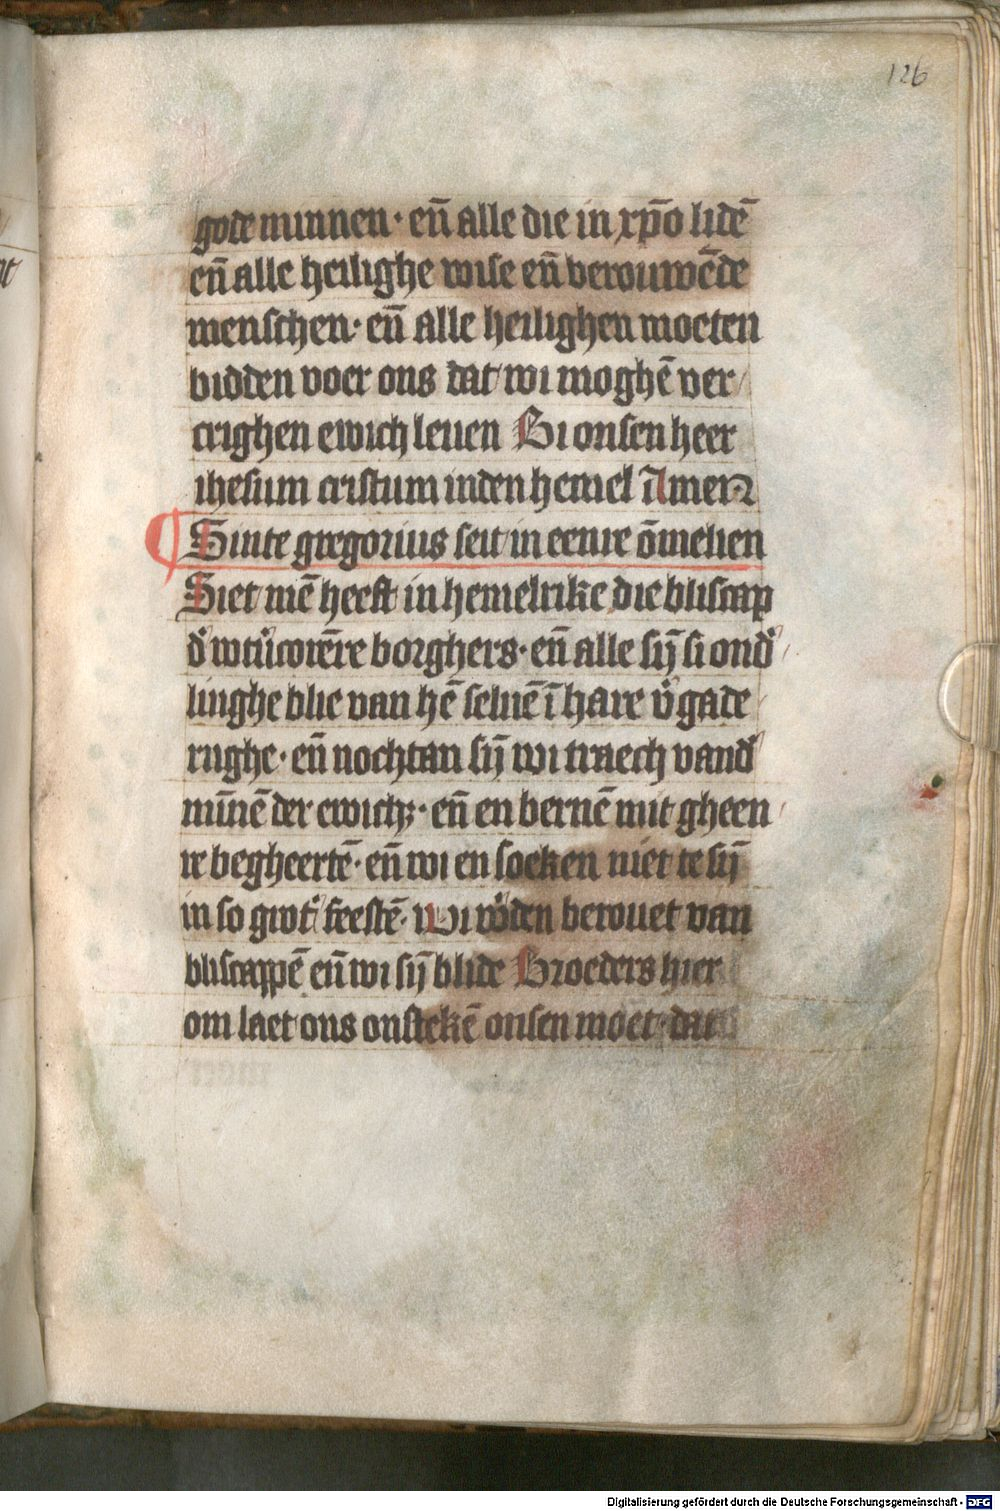 126
gode minnen· en̄ alle die in xp̄o lidē
en̄ alle heilighe wise en̄ verouwēde
menschen· en̄ alle heilighen moeten
bidden voer ons dat wi moghē ver/
crighen ewich leuen Bi onsen heer
ihesum cristum inden hemel Amen
¶ Sinte gregorius seit in eenre ōmelien
Siet mē heeft in hemelrike die bliscap
d' wtu'corēre borghers· en̄ alle sijn̄ si ond'/
linghe blie van hē seluē ī hare v'gade/
rughe· en̄ nochtan sijn̄ wi traech vand'
mīnē der ewichʒ· en̄ en bernē mit gheen/
re begheertē· en̄ wi en soeken niet te sijn̄
in so grot' feestē· Wi w'den berouet van
bliscappē en̄ wi sijn̄ blide Broeders hier
om laet ons onstekē onsen moet· dat
Digitalisierung gefördert durch die Deutsche Forschungsgemeinschaft - DFG